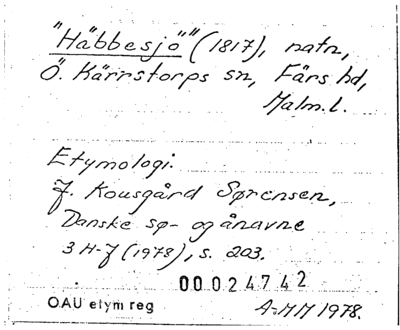 "Häbbesjö" (1817), natn,
Ö. Kärrstorps sn, Färs hd,
Malm. l.
Etymologi.
J. Kousgård Sørensen,
Danske sø- og ånavne
3 H-J (1978), s. 203.
00024742
OAU etym reg
A-MM 1978.